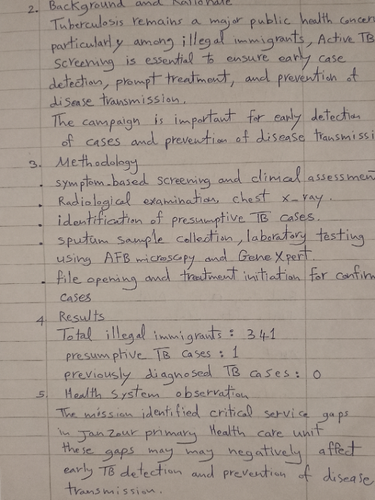 2. Background and Rationale
Tuberculosis remains a major public health concern
particularly among illegal immigrants, Active TB
screening is essential to ensure early case
detection, prompt treatment, and prevention of
disease transmission.
The campaign is important for early detection
of cases and prevention of disease transmissi
3. Methodology
. symptom-based screening and clinical assessment
. Radiological examination, chest x-ray.
. identification of presumptive TB cases.
. sputum sample collection, laboratory testing
using AFB microscopy and GeneXpert.
. file opening and treatment initiation for confirm
cases
4. Results
Total illegal immigrants : 341
presumptive TB cases : 1
previously diagnosed TB cases : 0
5. Health system observation
The mission identified critical service gaps
in Janzour primary Health care unit
these gaps may may negatively affect
early TB detection and prevention of disease
transmission.